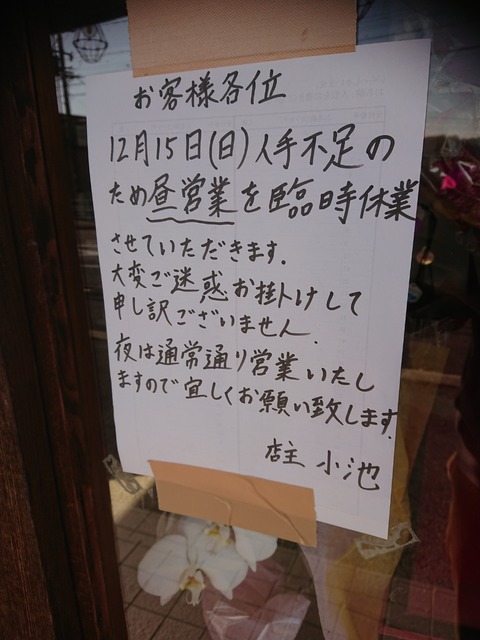 お客様各位
12月15日(日)人手不足の
ため昼営業を臨時休業
させていただきます.
大変ご迷惑お掛けして
申し訳ございません.
夜は通常通り営業いたし
ますので宜しくお願い致します.
店主 小池